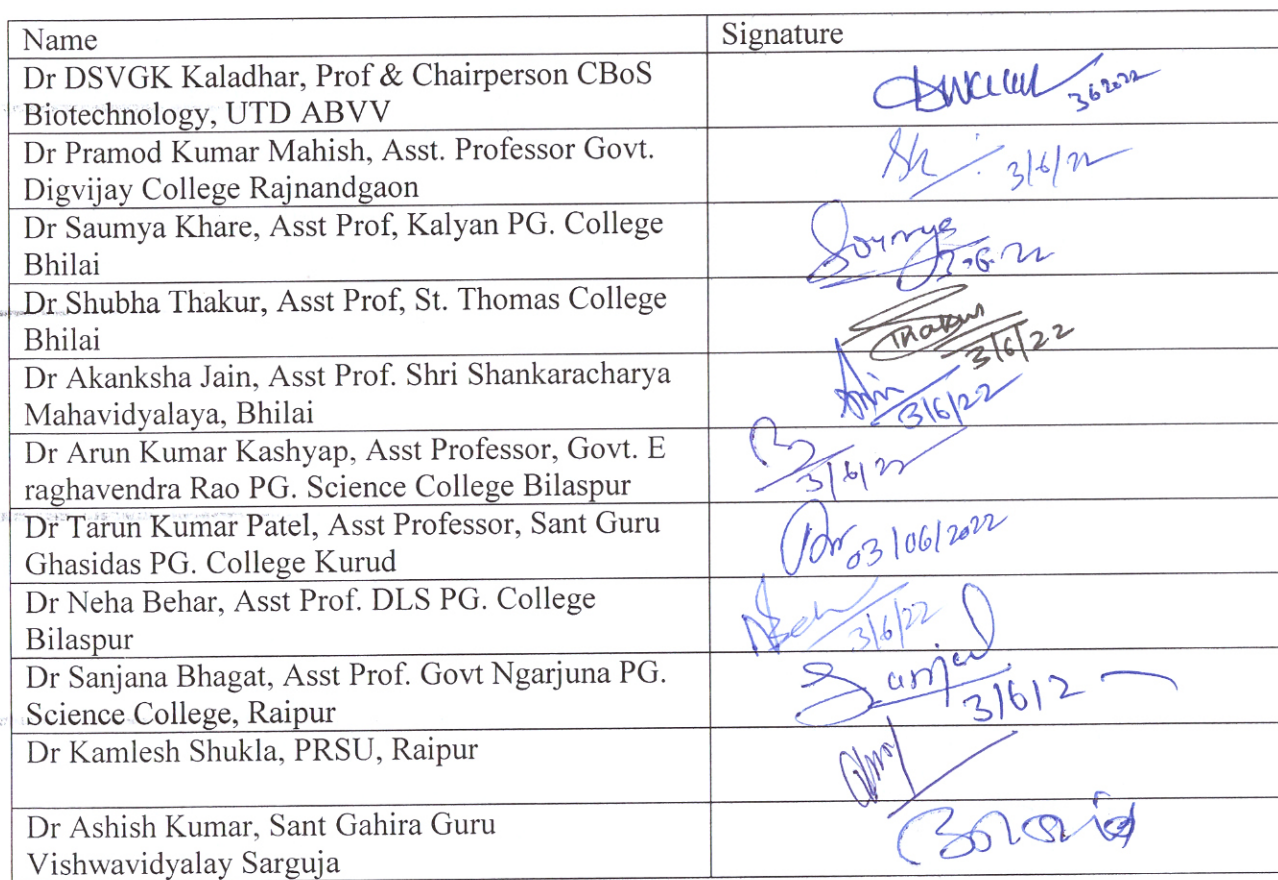 Name
Signature
Dr DSVGK Kaladhar, Prof & Chairperson CBoS
Biotechnology, UTD ABVV
362022
Dr Pramod Kumar Mahish, Asst. Professor Govt.
Digvijay College Rajnandgaon
3/6/22
Dr Saumya Khare, Asst Prof, Kalyan PG. College
Bhilai
3.6.22
Dr Shubha Thakur, Asst Prof, St. Thomas College
Bhilai
Thakur
3/6/22
Dr Akanksha Jain, Asst Prof. Shri Shankaracharya
Mahavidyalaya, Bhilai
3/6/22
Dr Arun Kumar Kashyap, Asst Professor, Govt. E
raghavendra Rao PG. Science College Bilaspur
3/6/22
Dr Tarun Kumar Patel, Asst Professor, Sant Guru
Ghasidas PG. College Kurud
03/06/2022
Dr Neha Behar, Asst Prof. DLS PG. College
Bilaspur
3/6/22
Dr Sanjana Bhagat, Asst Prof. Govt Ngarjuna PG.
Science College, Raipur
3/6/2
Dr Kamlesh Shukla, PRSU, Raipur
Dr Ashish Kumar, Sant Gahira Guru
Vishwavidyalay Sarguja